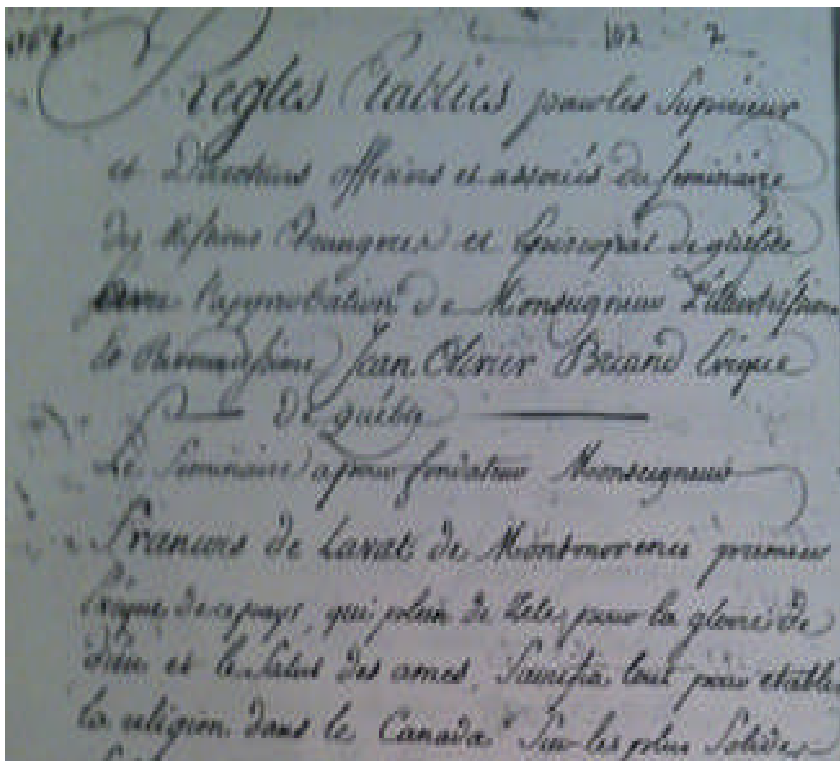 102 2
Regles Etablies pour les Superieur
et Directeurs officiers et associés du Seminaire
des Missions Etrangeres et Episcopal de quebec
avec l'approbation de Monseigneur L'illustrissime
et Reverendissime Jean Olivier Briand Evêque
De québec
Le Seminaire a pour fondateur Monseigneur
François de Laval de Montmorenci premier
Evêque de ce pays, qui plein de Zele, pour la gloire de
Dieu et le Salut des ames, Sacrifia tout pour etablir
la religion dans le Canada Sur les plus Solides